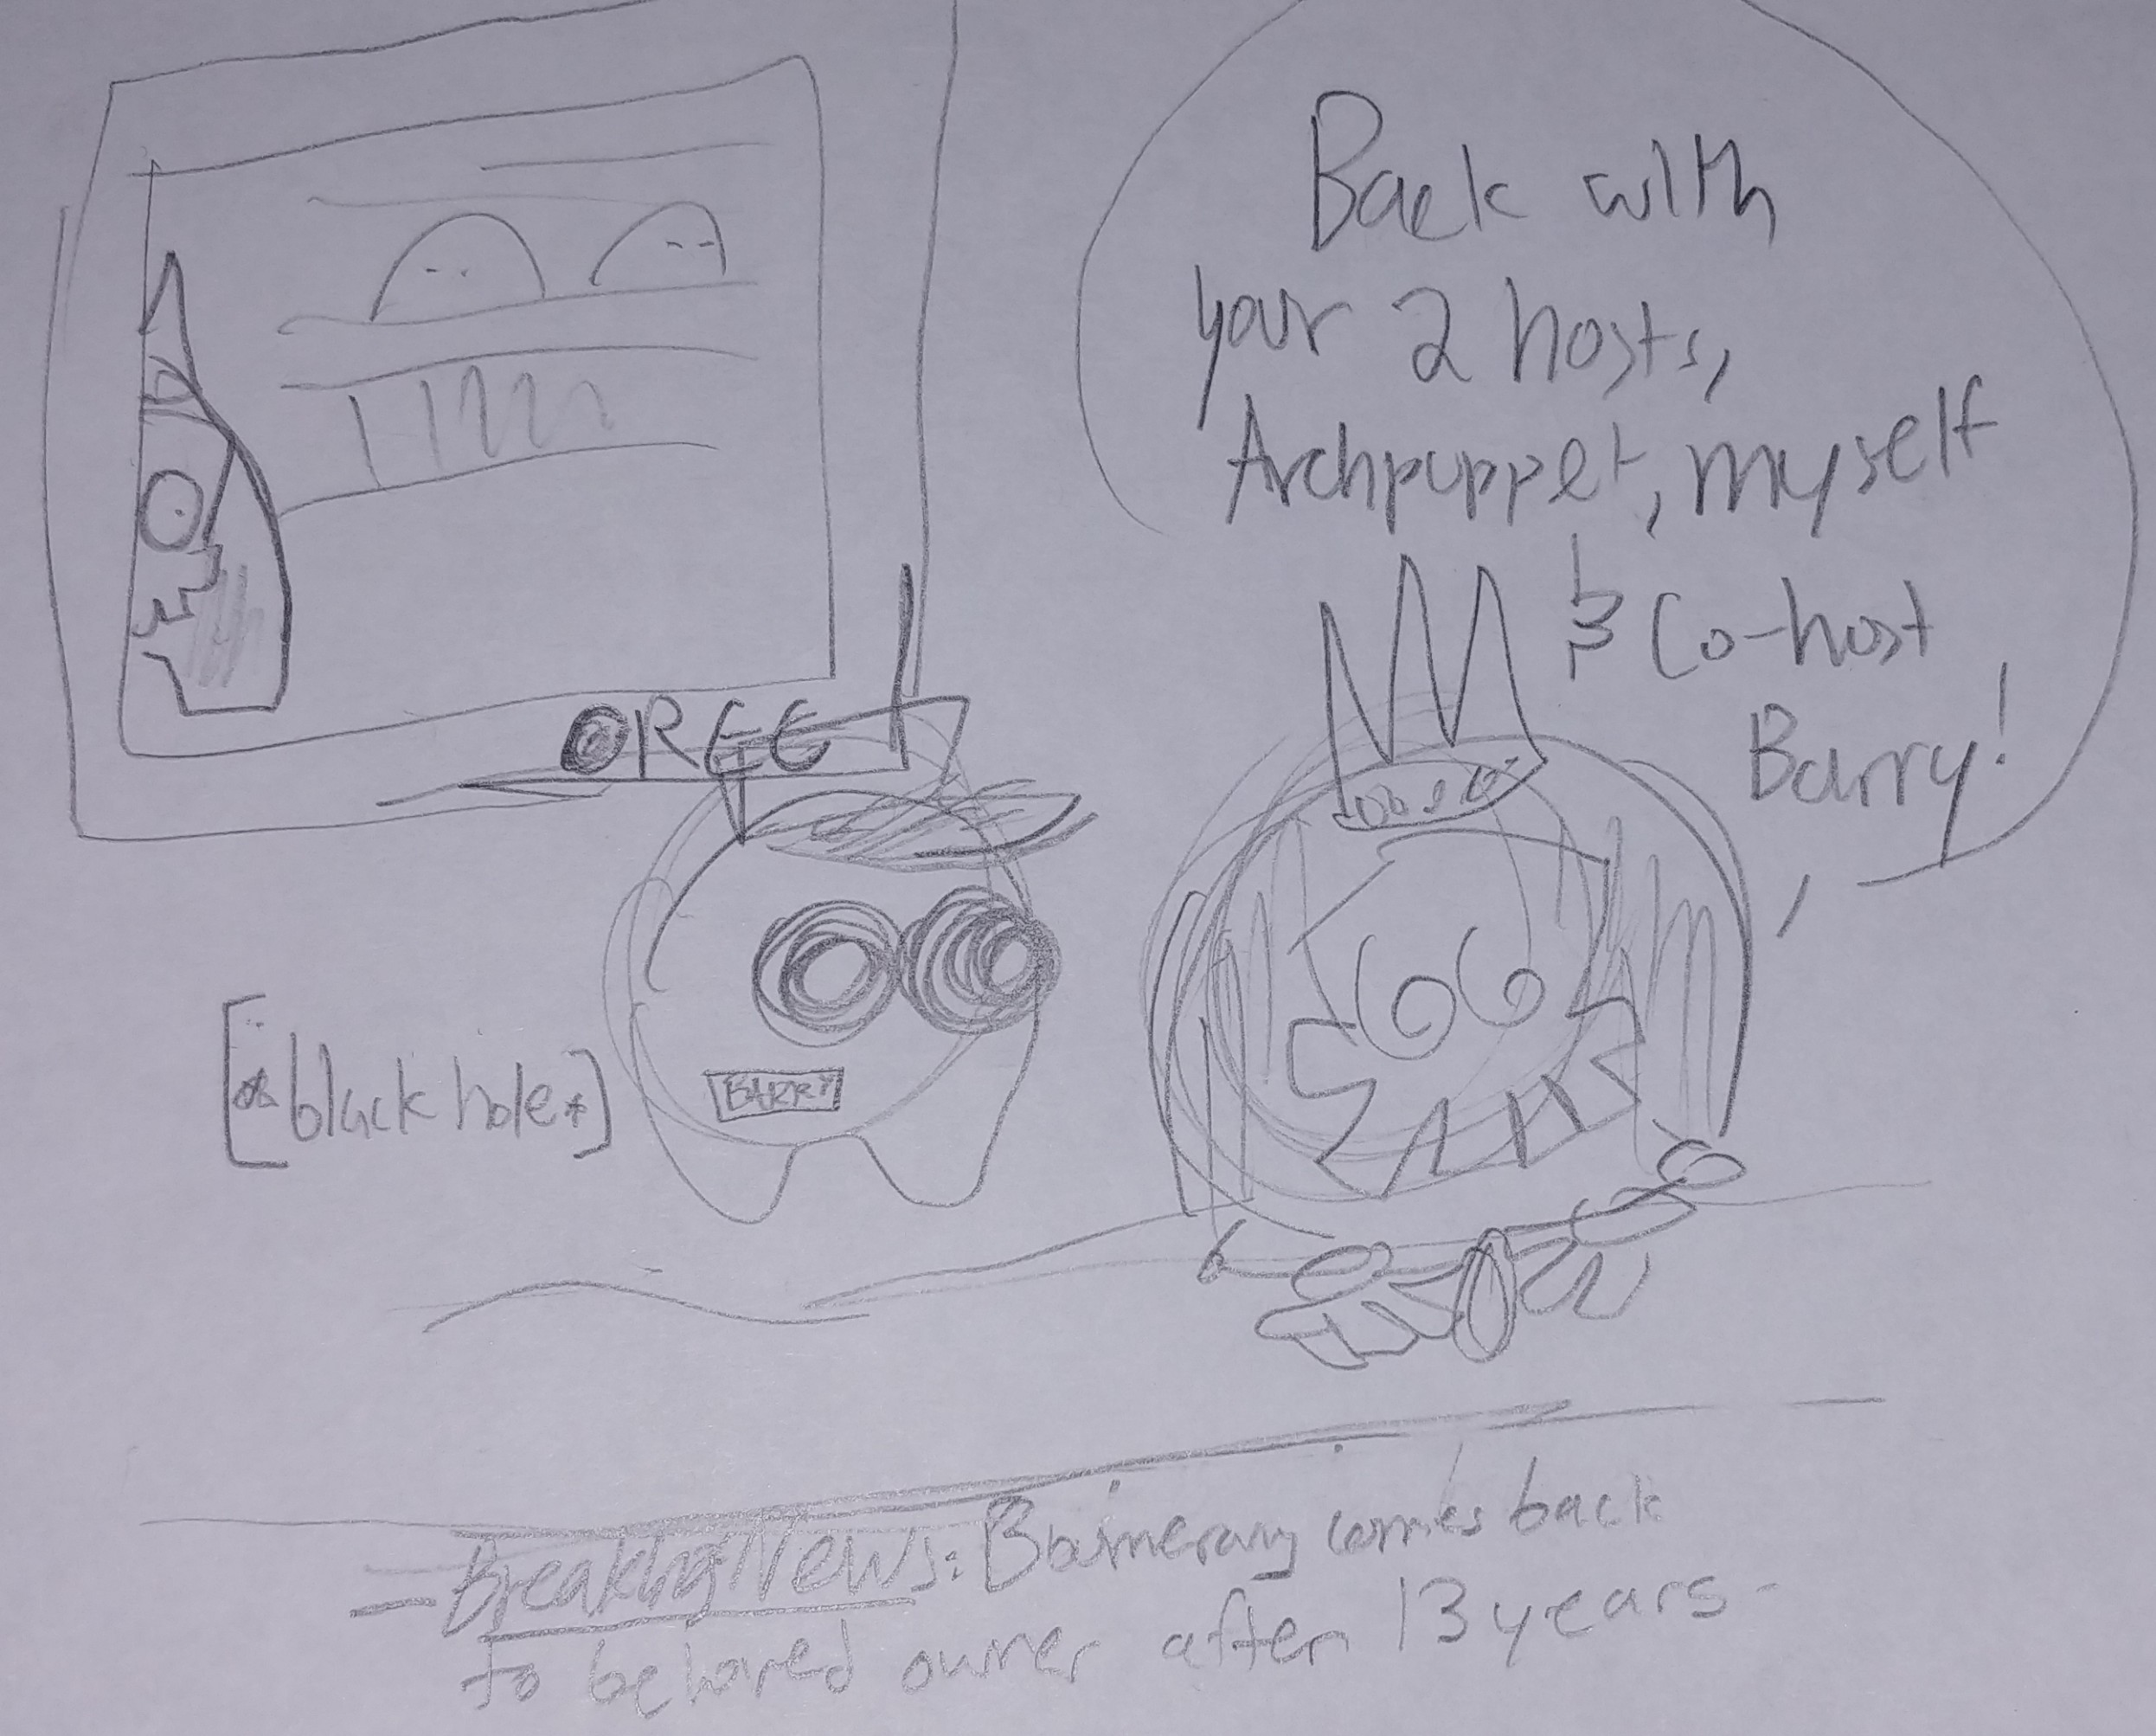 Back with
your 2 hosts,
Archpuppet, myself
& Co-host
Barry!
OREE
[*black hole*]
BARRY
- Breaking News: Boomerang comes back
to beloved owner after 13 years-